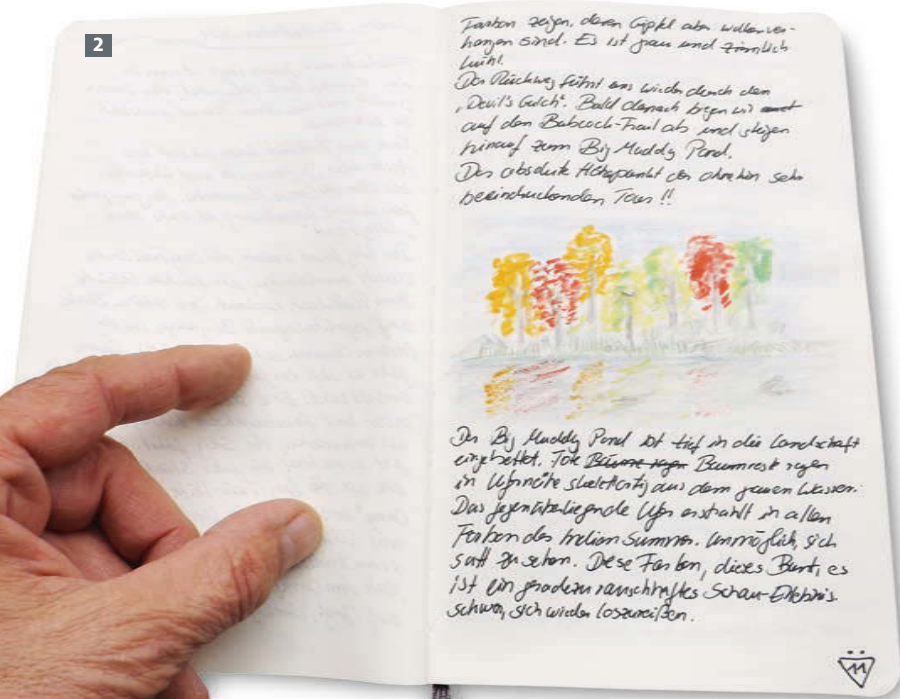 2
Farben zeigen, deren Gipfel aber wolkenver-
hangen sind. Es ist grau und ziemlich
kühl.
Der Rückweg führt uns wieder durch den
„Devil's Gulch". Bald danach biegen wir
auf den Babcock-Trail ab und steigen
hinauf zum Big Muddy Pond.
Der absolute Höhepunkt der ohnehin sehr
beeindruckenden Tour!!
Der Big Muddy Pond ist tief in die Landschaft
eingebettet. Tote Bäume ragen Baumreste ragen
in Ufernähe skelettartig aus dem grauen Wasser.
Das gegenüberliegende Ufer erstrahlt in allen
Farben des Indian Summer. Unmöglich, sich
satt zu sehen. Diese Farben, dieses Bunt, es
ist ein geradezu rauschhaftes Schau-Erlebnis.
Schwer, sich wieder loszureißen.